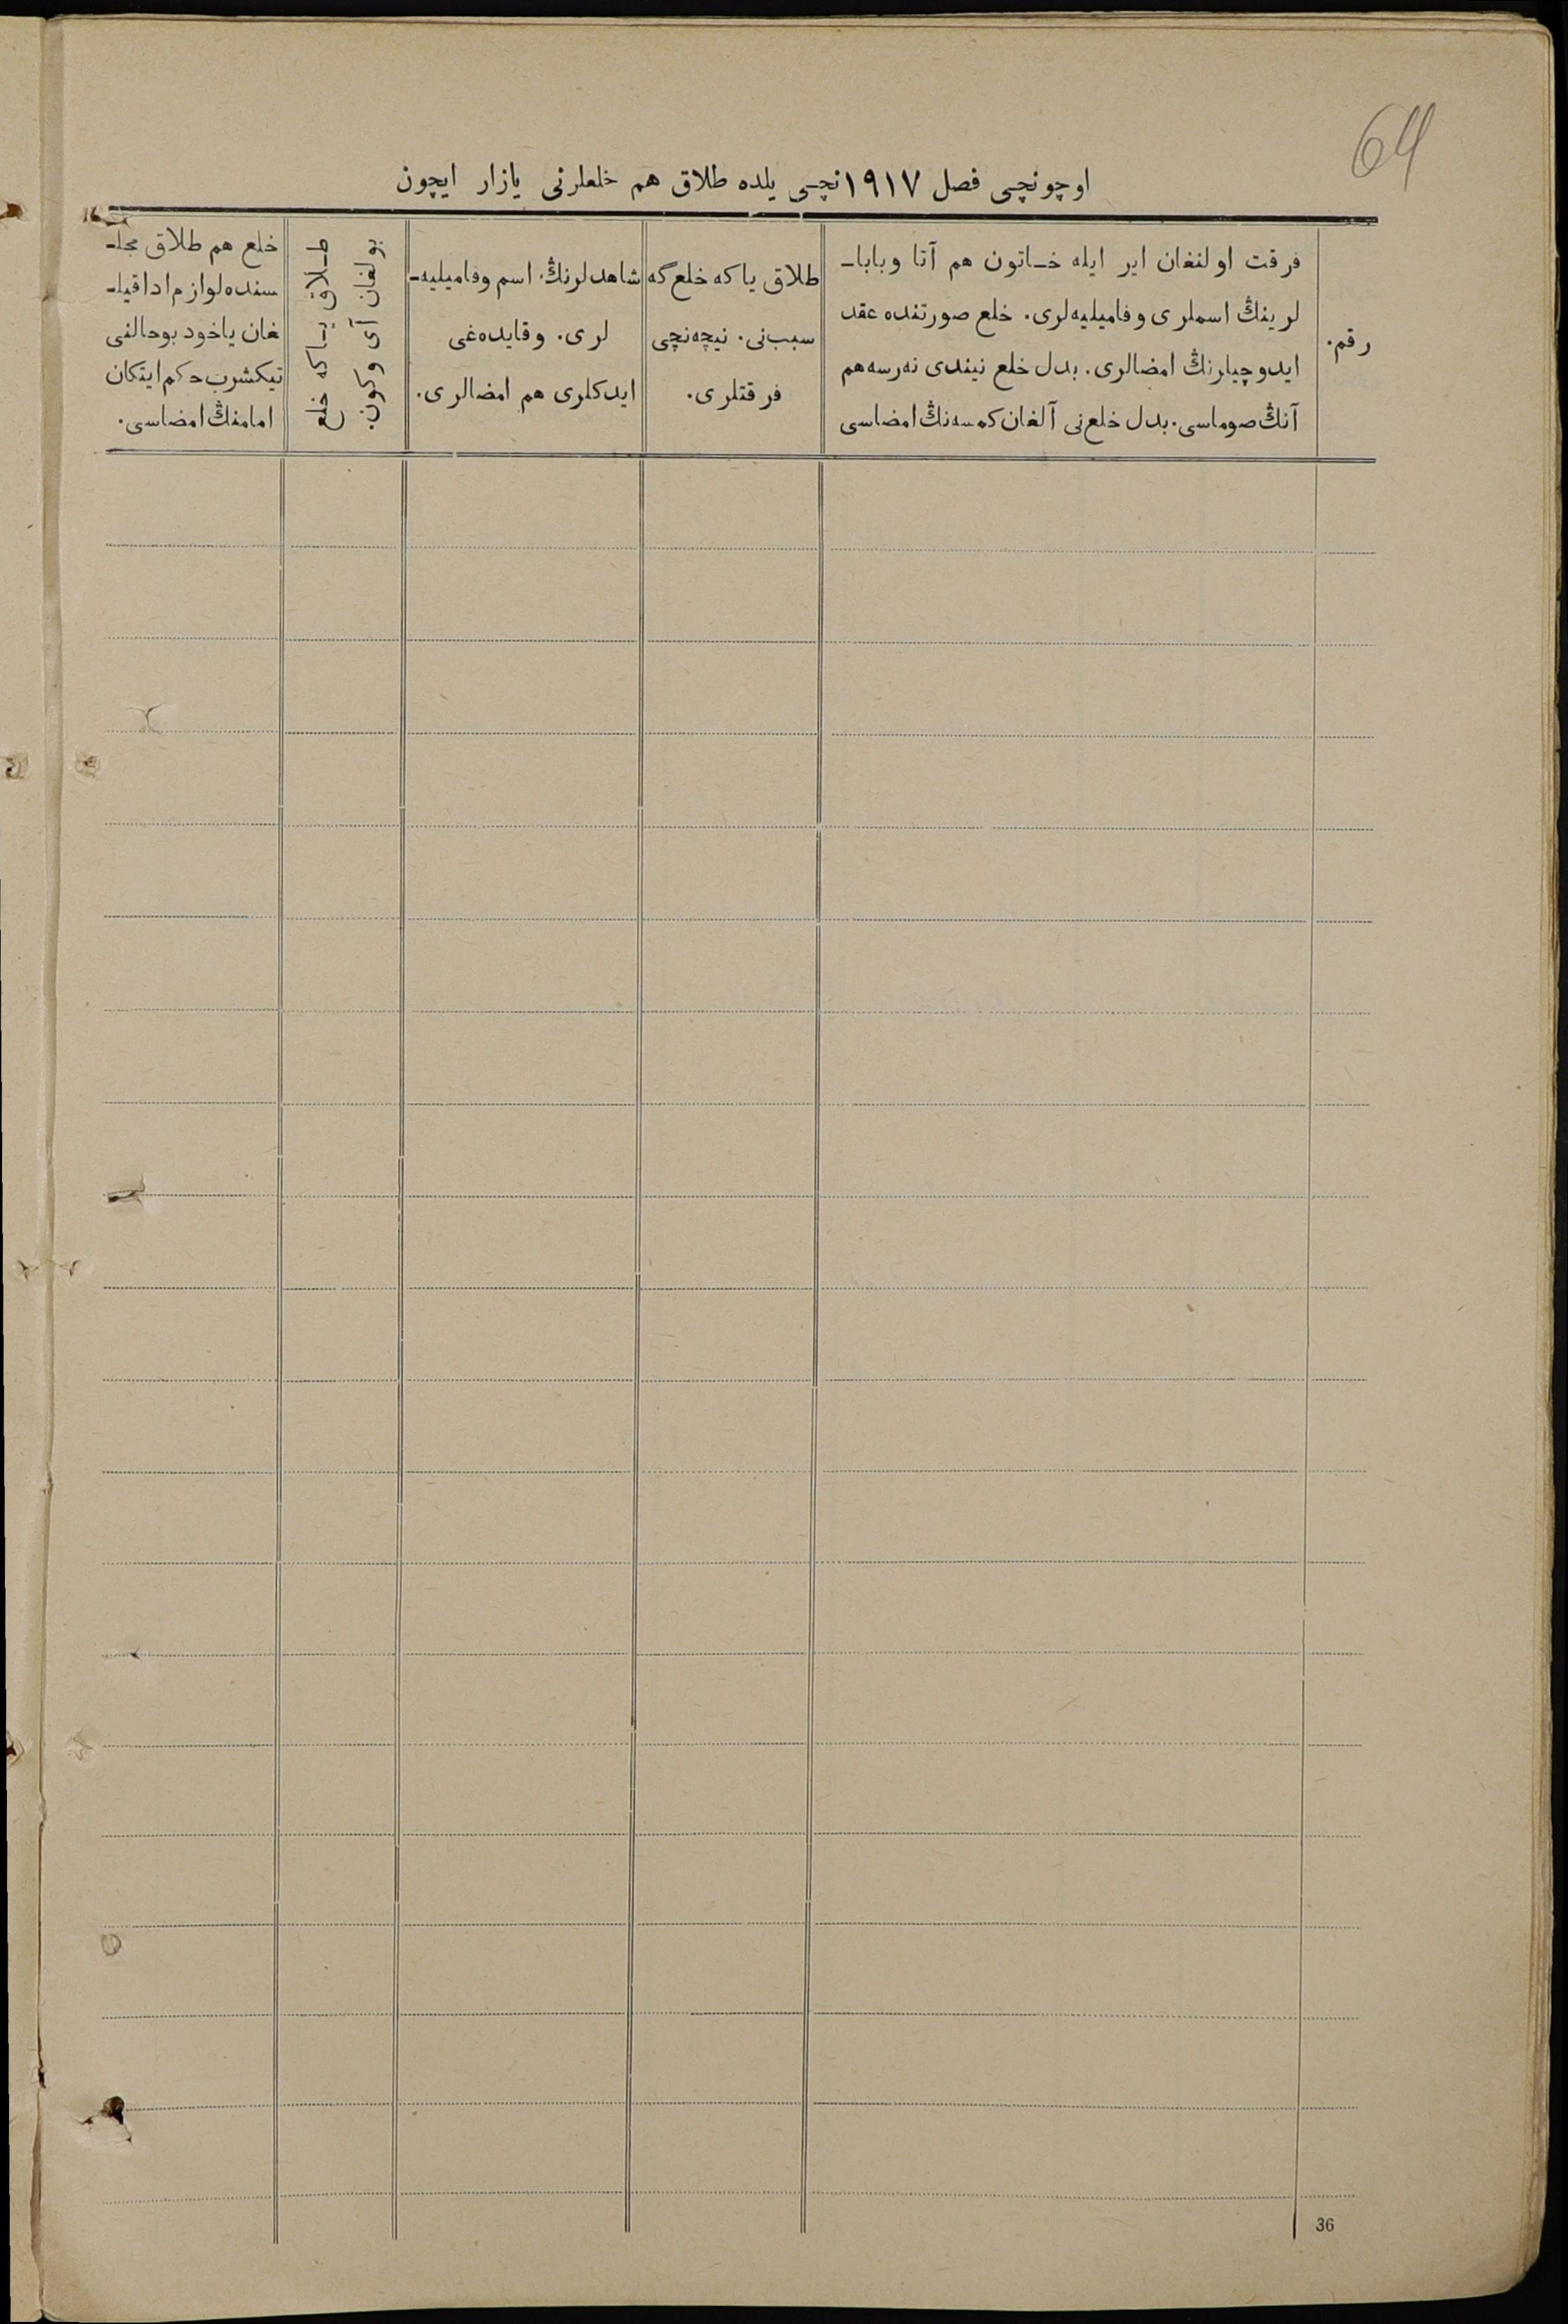 64
اوچونچی فصل ١٩١٧نچی یلده طلاق هم خلعلرنی یازار ایچون
رقم.
فرقت اولنغان ایر ایله خاتون هم آتا وبابا-
لرینڭ اسملری وفامیلیه‌لری. خلع صورتنده عقد
ایدوچیلرنڭ امضالری. بدل خلع نیندی نه‌رسه هم
آنڭ صوماسی. بدل خلع نی آلغان کمسه‌نڭ امضاسی
طلاق یا که خلع گه
سبب نی. نیچه‌نچی
فرقتلری.
شاهدلرنڭ اسم وفامیلیه-
لری. وقایده‌غی
ایدکلری هم امضالری.
طلاق یا که خلع
بولغان آی وکون.
خلع هم طلاق مجل-
سنده لوازم ادا قیل-
غان یاخود بوحالنی
تیکشرب حکم ایتکان
امامنڭ امضاسی.
36